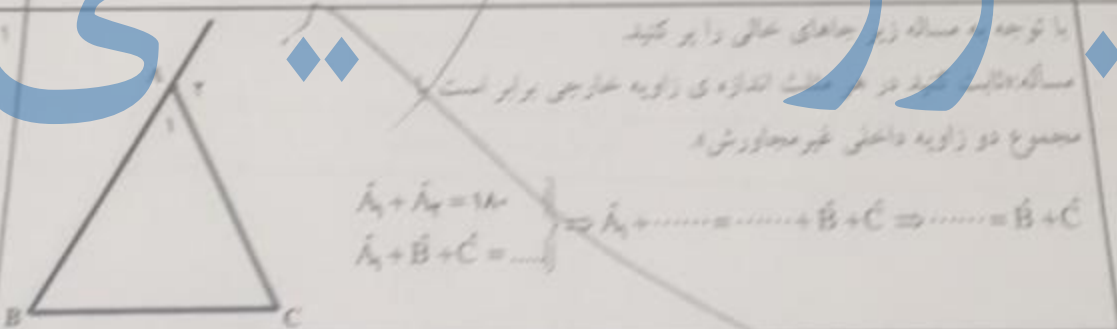 با توجه به مساله زیر جاهای خالی را پر کنید.
مساله: ثابت کنید در هر مثلث اندازه ی زاویه خارجی برابر است با
مجموع دو زاویه داخلی غیرمجاورش.
Â₁ + Â₂ = ۱۸۰
Â₁ + B̂ + Ĉ = ..... } ⇒ Â₁ + ....... = ....... + B̂ + Ĉ ⇒ ....... = B̂ + Ĉ
A
۲
۱
B C